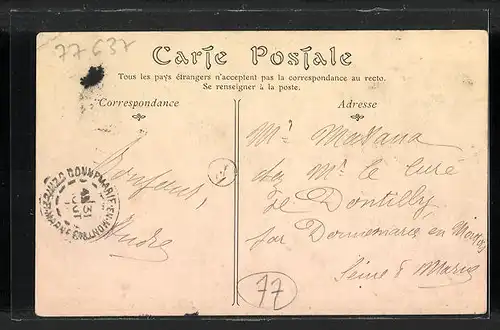 77637
Carte Postale
Tous les pays étrangers n'acceptent pas la correspondance au recto.
Se renseigner à la poste.
Correspondance
Adresse
Mr
chez Mr le curé
de Dontilly
par Donnemarie en Montois
Seine & Marne
André
DONNEMARIE-EN-MONTOIS
SEINE-ET-MARNE
31
77